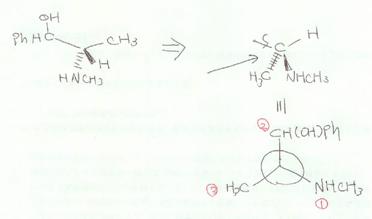 OH
PhHC
CH3
H
HNCH3
⇒
C
H
H3C
NHCH3
②
CH(OH)Ph
③ H3C
NHCH3
①